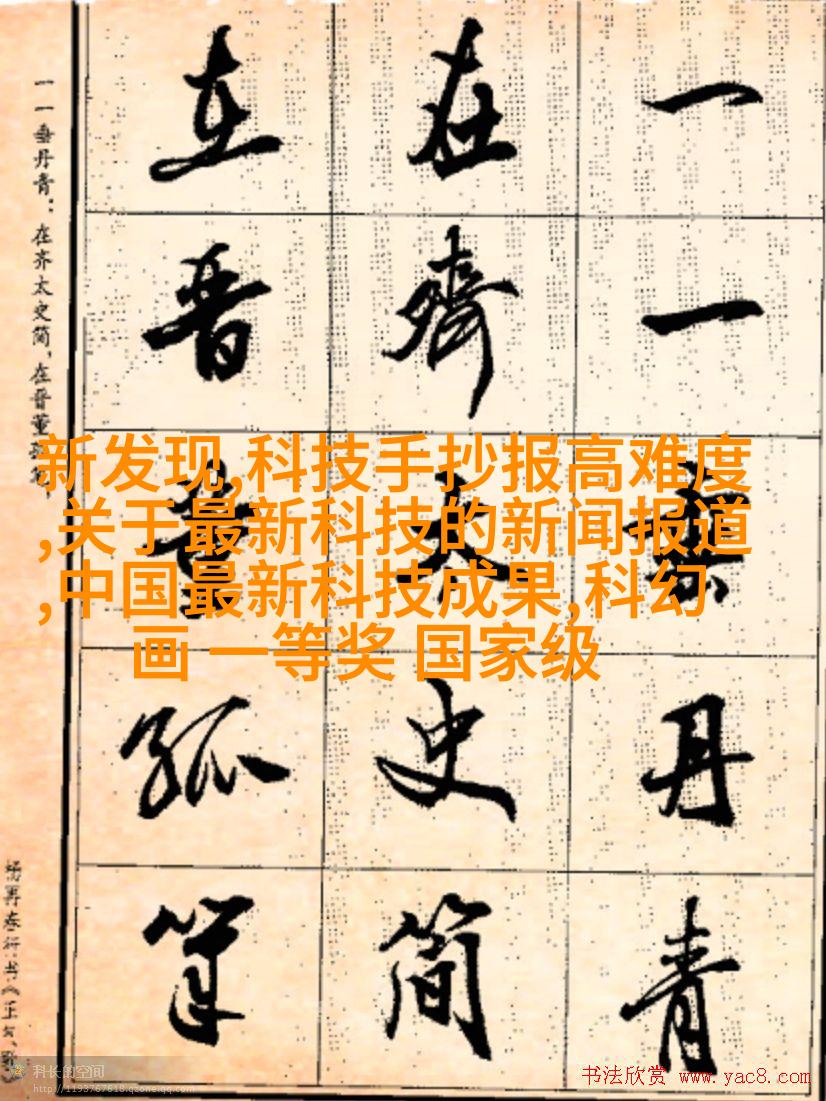 一一垂丹青
在齊太史简
在晋董狐筆
一一垂丹青：在齐太史简，在晋董
杨再春行书《正气歌》
新发现,科技手抄报高难度
,关于最新科技的新闻报道
,中国最新科技成果,科幻
画 一等奖 国家级
科长的空间
http://1193767618.qzone.qq.com
书法欣赏 www.yac8.com